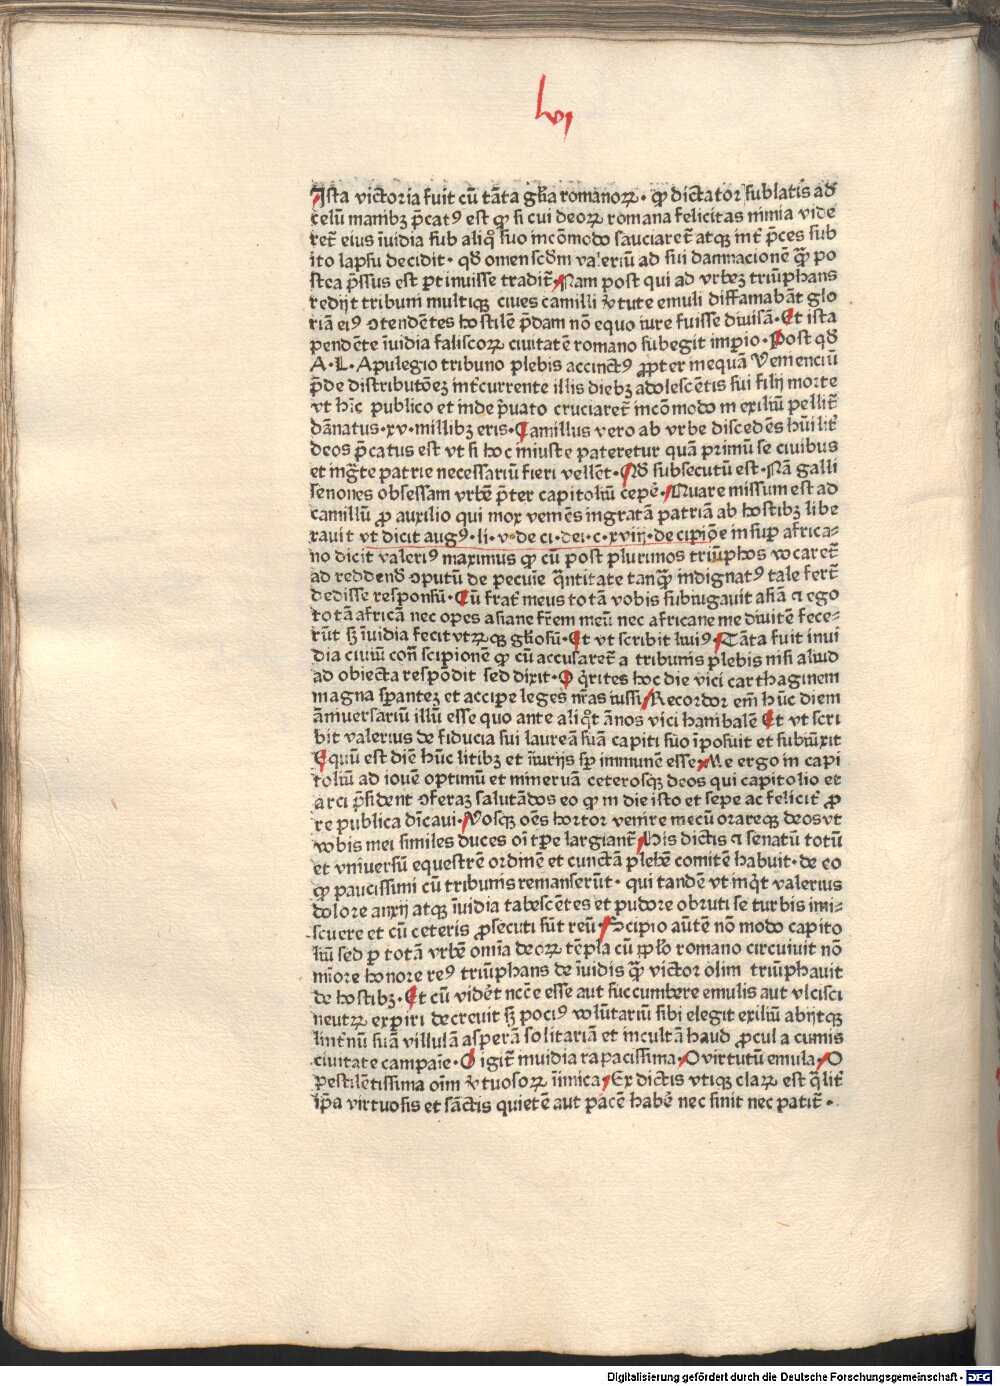 lvi
Ista victoria fuit cū tāta gl̄ia romanoꝝ · qͥ dictator sublatis ad
celū manibꝫ p̄catꝰ est qͥ si cui deoꝝ romana felicitas nimia vide
ret̄ eius īuidia sub aliqͦ suo incōmodo sauciaret̄ atqꝫ int̄ p̄ces sub
ito lapsu decidit · qd̄ omen scd̄m valeriū ad sui damnacionē qͣꝫ po
stea p̄ssus est ꝑtinuisse tradit̄ · Nam post qui ad vrbeꝫ triūphans
redijt tribuni multiqꝫ ciues camilli v̄tute emuli diffamabāt glo
riā eiꝰ ↄtendētes hostilē p̄dam nō equo iure fuisse diuisā · Et ista
pendēte īuidia faliscoꝝ ciuitatē romano subegit imꝑio · Post qd̄
A · L · Apulegio tribuno plebis accinctꝰ ꝓpter inequā Vemenciū
p̄de distributōeꝫ int̄currente illis diebꝫ adolescētis sui filij morte
vt hīc publico et inde p̄uato cruciaret̄ incōmodo in exiliū pellit̄
dānatus · xv · millibꝫ eris · Camillus vero ab vrbe discedēs hūilit̄
deos p̄catus est vt si hoc iniuste pateretur quā primū se ciuibus
et ingͣte patrie necessariū fieri vellēt · Qd̄ subsecutū est · Nā galli
senones obsessam vrbē p̄ter capitoliū cepē · Quare missum est ad
camillū ꝓ auxilio qui mox veniēs ingratā patriā ab hostibꝫ libe
rauit vt dicit augꝰ · li · v · de ci · dei · c · xviij · de cipiōe insuꝑ africa-
no dicit valeriꝰ maximus qͥ cū post plurimos triūphos vocaret̄
ad reddend̄ ↄputū de pecuie qͣntitate tanqͣꝫ indignatꝰ tale fert̄
dedisse responsū · Cū frat̄ meus totā vobis subiugauit asiā ⁊ ego
totā africā nec opes asiane fr̄em meū nec africane me diuitē fece-
rūt sꝫ īuidia fecit vtꝝqꝫ gl̄iosū · Et vt scribit liuiꝰ · Tāta fuit inui
dia ciuiū con̄ scipionē qͥ cū accusaret̄ a tribunis plebis nisi aliud
ad obiecta respōdit sed dixit · O qͥrites hoc die vici carthaginem
magna sꝑanteꝫ et accipe leges nr̄as iussi · Recordor em̄ hūc diem
āniuersariū illū esse quo ante aliqͦt ānos vici hanibalē Et vt scri
bit valerius de fiducia sui laureā suā capiti suo īposuit et subiūxit
Equū est diē hūc litibꝫ et īiurijs sꝑ immunē esse · Me ergo in capi
toliū ad iouē optimū et mineruā ceterosqꝫ deos qui capitolio et
arci p̄sident ↄferaꝫ salutādos eo qͥ in die isto et sepe ac felicit̄ ꝓ
re publica dn̄icaui · Vosqꝫ oēs hortor venire mecū orareqꝫ deos vt
vobis mei similes duces oī tꝑe largiant̄ · His dictis ⁊ senatū totū
et vniuersū equestrē ordinē et cunctā plebē comitē habuit · de eo
qͥ paucissimi cū tribunis remanserūt · qui tandē vt inqͥt valerius
dolore anxij atqꝫ īuidia tabescētes et pudore obruti se turbis imi-
scuere et cū ceteris ꝓsecuti sūt reū · Scipio autē nō modo capito
liū sed ꝑ totā vrbē omīa deoꝝ tēpla cū ꝓpl̄o romano circuiuit nō
mīore honore reꝰ triūphans de īuidis qͣꝫ victor olim triūphauit
de hostibꝫ · Et cū vidēt ncc̄e esse aut succumbere emulis aut vlcisci
neutꝝ exꝑiri decreuit sꝫ pociꝰ volūtariū sibi elegit exiliū abijtqꝫ
lint̄nū suā villulā asꝑerā solitariā et incultā haud ꝓcul a cumis
ciuitate campaīe · O igit̄ inuidia rapacissima · O virtutū emula · O
pestilētissima oīm v̄tuosoꝝ īimica · Ex dictis vtiqꝫ claꝝ est qͣlit̄
ip̄a virtuosis et sāctis quietē aut pacē habē nec sinit nec patit̄ ·
Digitalisierung gefördert durch die Deutsche Forschungsgemeinschaft - DFG